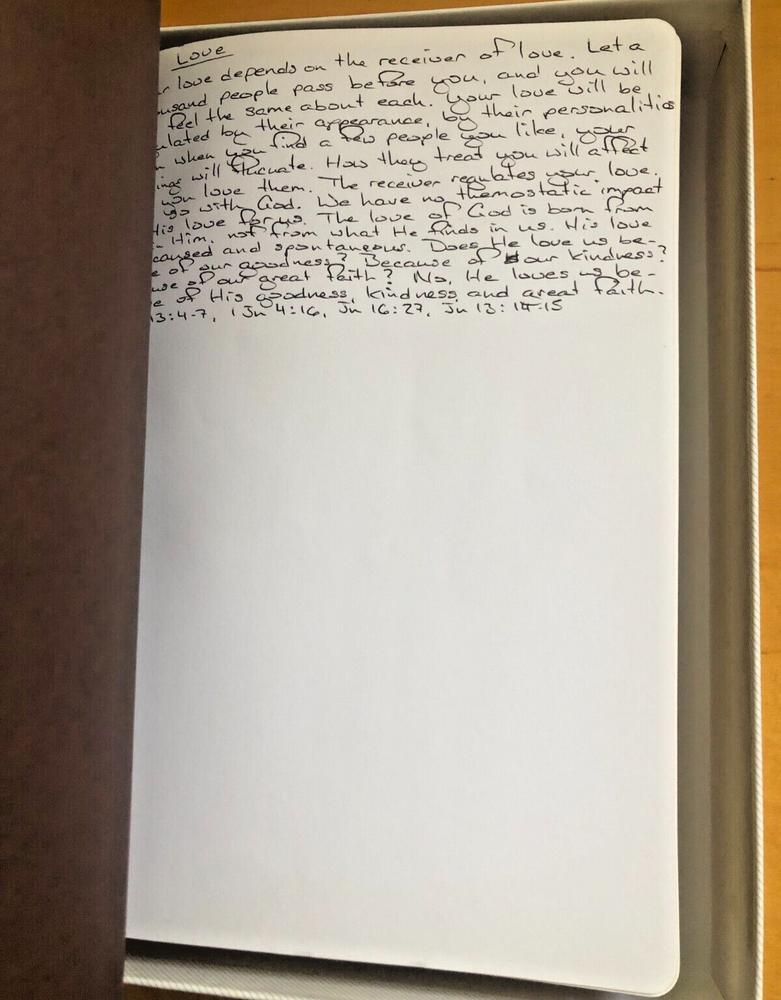 Love
r love depends on the receiver of love. Let a
usand people pass before you, and you will
feel the same about each. Your love will be
ulated by their appearance, by their personalities
n when you find a few people you like, your
ings will flucuate. How they treat you will affect
you love them. The receiver regulates your love.
so with God. We have no themostatic impact
His love for us. The love of God is born from
Him, not from what He finds in us. His love
caused and spontaneous. Does He love us be-
e of our goodness? Because of our kindness?
use of our great faith? No, He loves us be-
e of His goodness, kindness and great faith.
13:4-7, 1 Jn 4:16, Jn 16:27, Jn 13:14-15